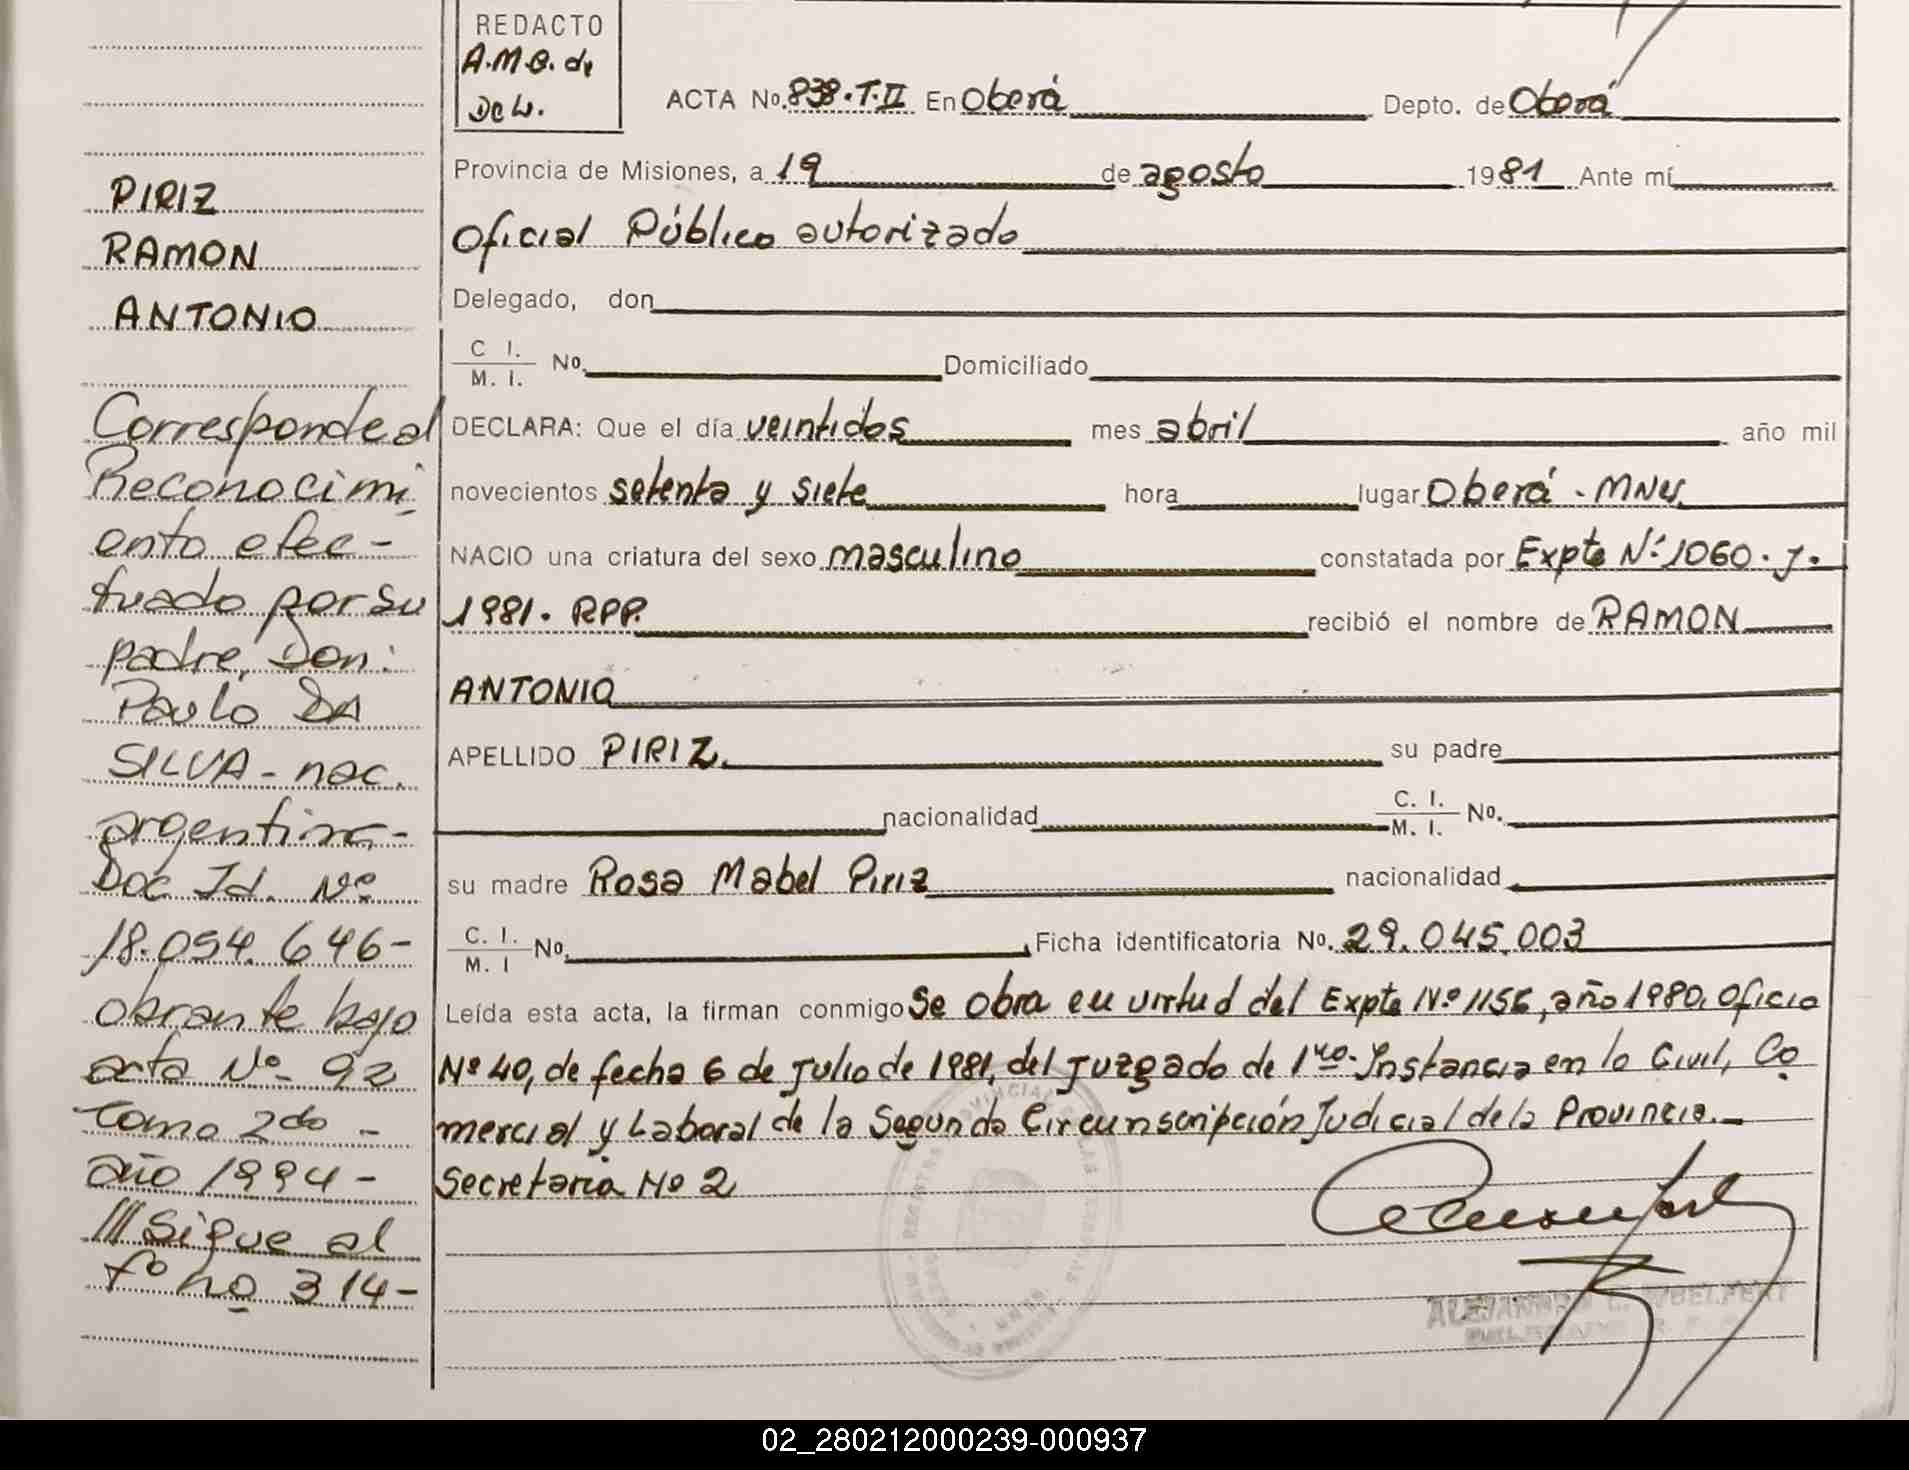 REDACTO
A.M.B. de
De W.
ACTA No. 838.T.II En Oberá Depto. de Oberá
Provincia de Misiones, a 19 de agosto 1981 Ante mí
Oficial Público autorizado
Delegado, don
C I. / M. I. No. Domiciliado
DECLARA: Que el día veintidos mes abril año mil
novecientos setenta y siete hora lugar Oberá - MNES.
NACIO una criatura del sexo masculino constatada por Expte Nº 1060. J.
1981. RPP. recibió el nombre de RAMON
ANTONIO
APELLIDO PIRIZ. su padre
nacionalidad C. I. / M. I. No.
su madre Rosa Mabel Piriz nacionalidad
C. I. / M. I No. Ficha identificatoria No. 29.045.003
Leída esta acta, la firman conmigo Se obra en virtud del Expte Nº 1156, año 1980, Oficio
Nº 40, de fecha 6 de Julio de 1981, del Juzgado de 1ra. Instancia en lo Civil, Co
mercial y Laboral de la Segunda Circunscripción Judicial de la Provincia.-
Secretaria Nº 2
PIRIZ
RAMON
ANTONIO
Corresponde al
Reconocimi
ento efec-
tuado por su
padre, Don:
Paulo DA
SILVA - nac.
argentina -
Doc Id. Nº
18.054.646-
obrante bajo
acta Nº 92
Tomo 2do -
año 1994 -
/// Sigue al
fº nº 314 -
02_280212000239-000937